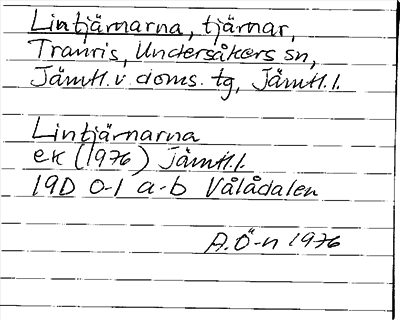 Lintjärnarna, tjärnar,
Tranris, Undersåkers sn,
Jämtl. v. doms. tg, Jämtl. l.
Lintjärnarna
ek (1976) Jämtl. l.
19D 0-1 a-b Vålådalen
A. Ö-n 1976